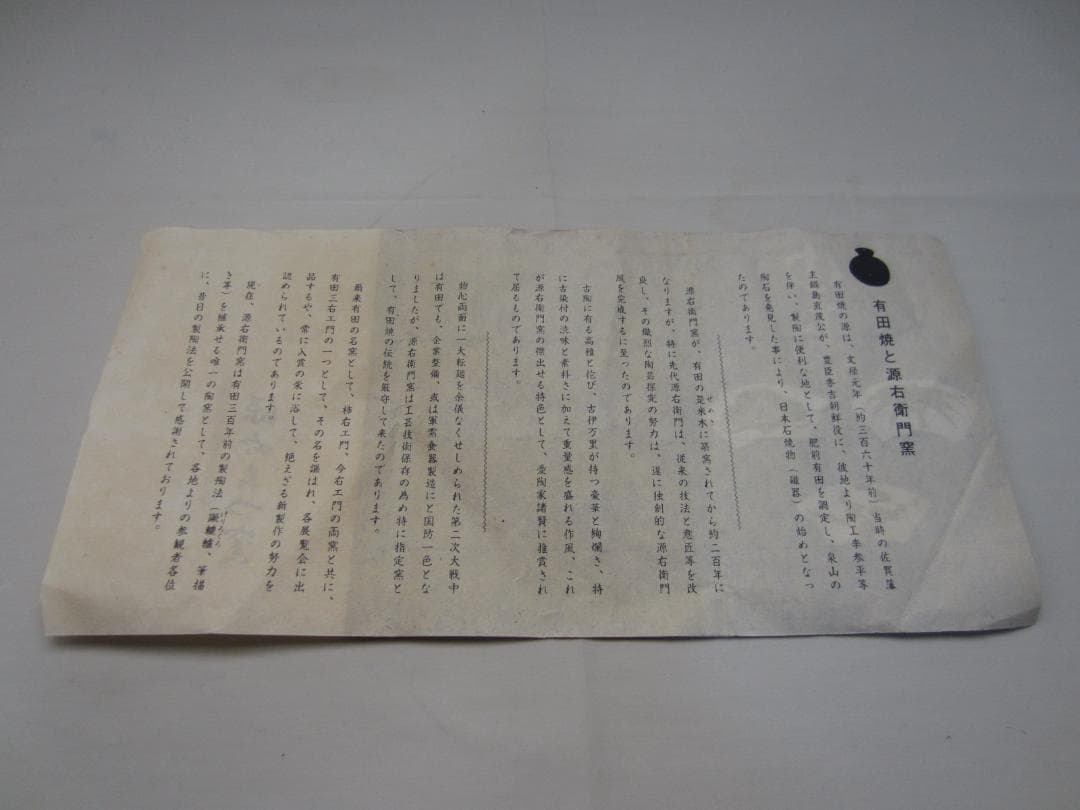 有田焼と源右衛門窯
有田焼の源は、文禄元年（約三百六十年前）当時の佐賀藩
主鍋島直茂公が、豊臣秀吉朝鮮役に、彼地より陶工李参平等
を伴い、製陶に便利な地として、肥前有田を調定し、泉山の
陶石を発見した事により、日本石焼物（磁器）の始めとなっ
たのであります。
源右衛門窯が、有田の 築窯されてから約二百年に
なりますが、特に先代源右衛門は、従来の技法と意匠等を改
良し、その熾烈な陶芸探究の努力は、遂に独創的な源右衛門
風を完成するに至ったのであります。
古陶に有る高雅と侘び、古伊万里が持つ豪華と絢爛さ、特
に古染付の渋味と素朴さに加えて重量感を盛れる作風、これ
が源右衛門窯の傑出せる特色として、愛陶家諸賢に推賞され
て居るものであります。
物心両面に一大転廻を余儀なくせしめられた第二次大戦中
は有田でも、企業整備、或は軍需食器製造にと国防一色とな
りましたが、源右衛門窯は工芸技術保存の為め特に指定窯と
して、有田焼の伝統を厳守して来たのであります。
爾来有田の名窯として、柿右エ門、今右エ門の両窯と共に、
有田三右エ門の一つとして、その名を謳はれ、各展覧会に出
品するや、常に入賞の栄に浴して、絶えざる新製作の努力を
認められているのであります。
現在、源右衛門窯は有田三百年前の製陶法（蹴轆轤、筆描
き等）を継承せる唯一の陶窯として、各地よりの参観者各位
に、昔日の製陶法を公開して感謝されております。